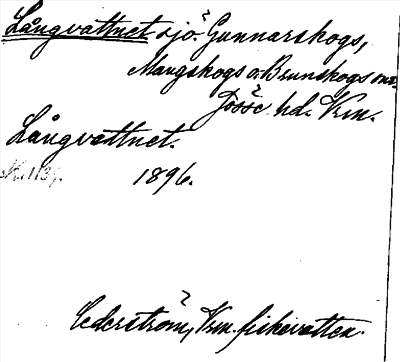 Långvattnet sjö i Gunnarskogs,
Mangskogs o. Brunskogs snr.
Jösse hd. Vrm.
Långvattnet.
1896.
Cederström, Vrm. fiskevatten.